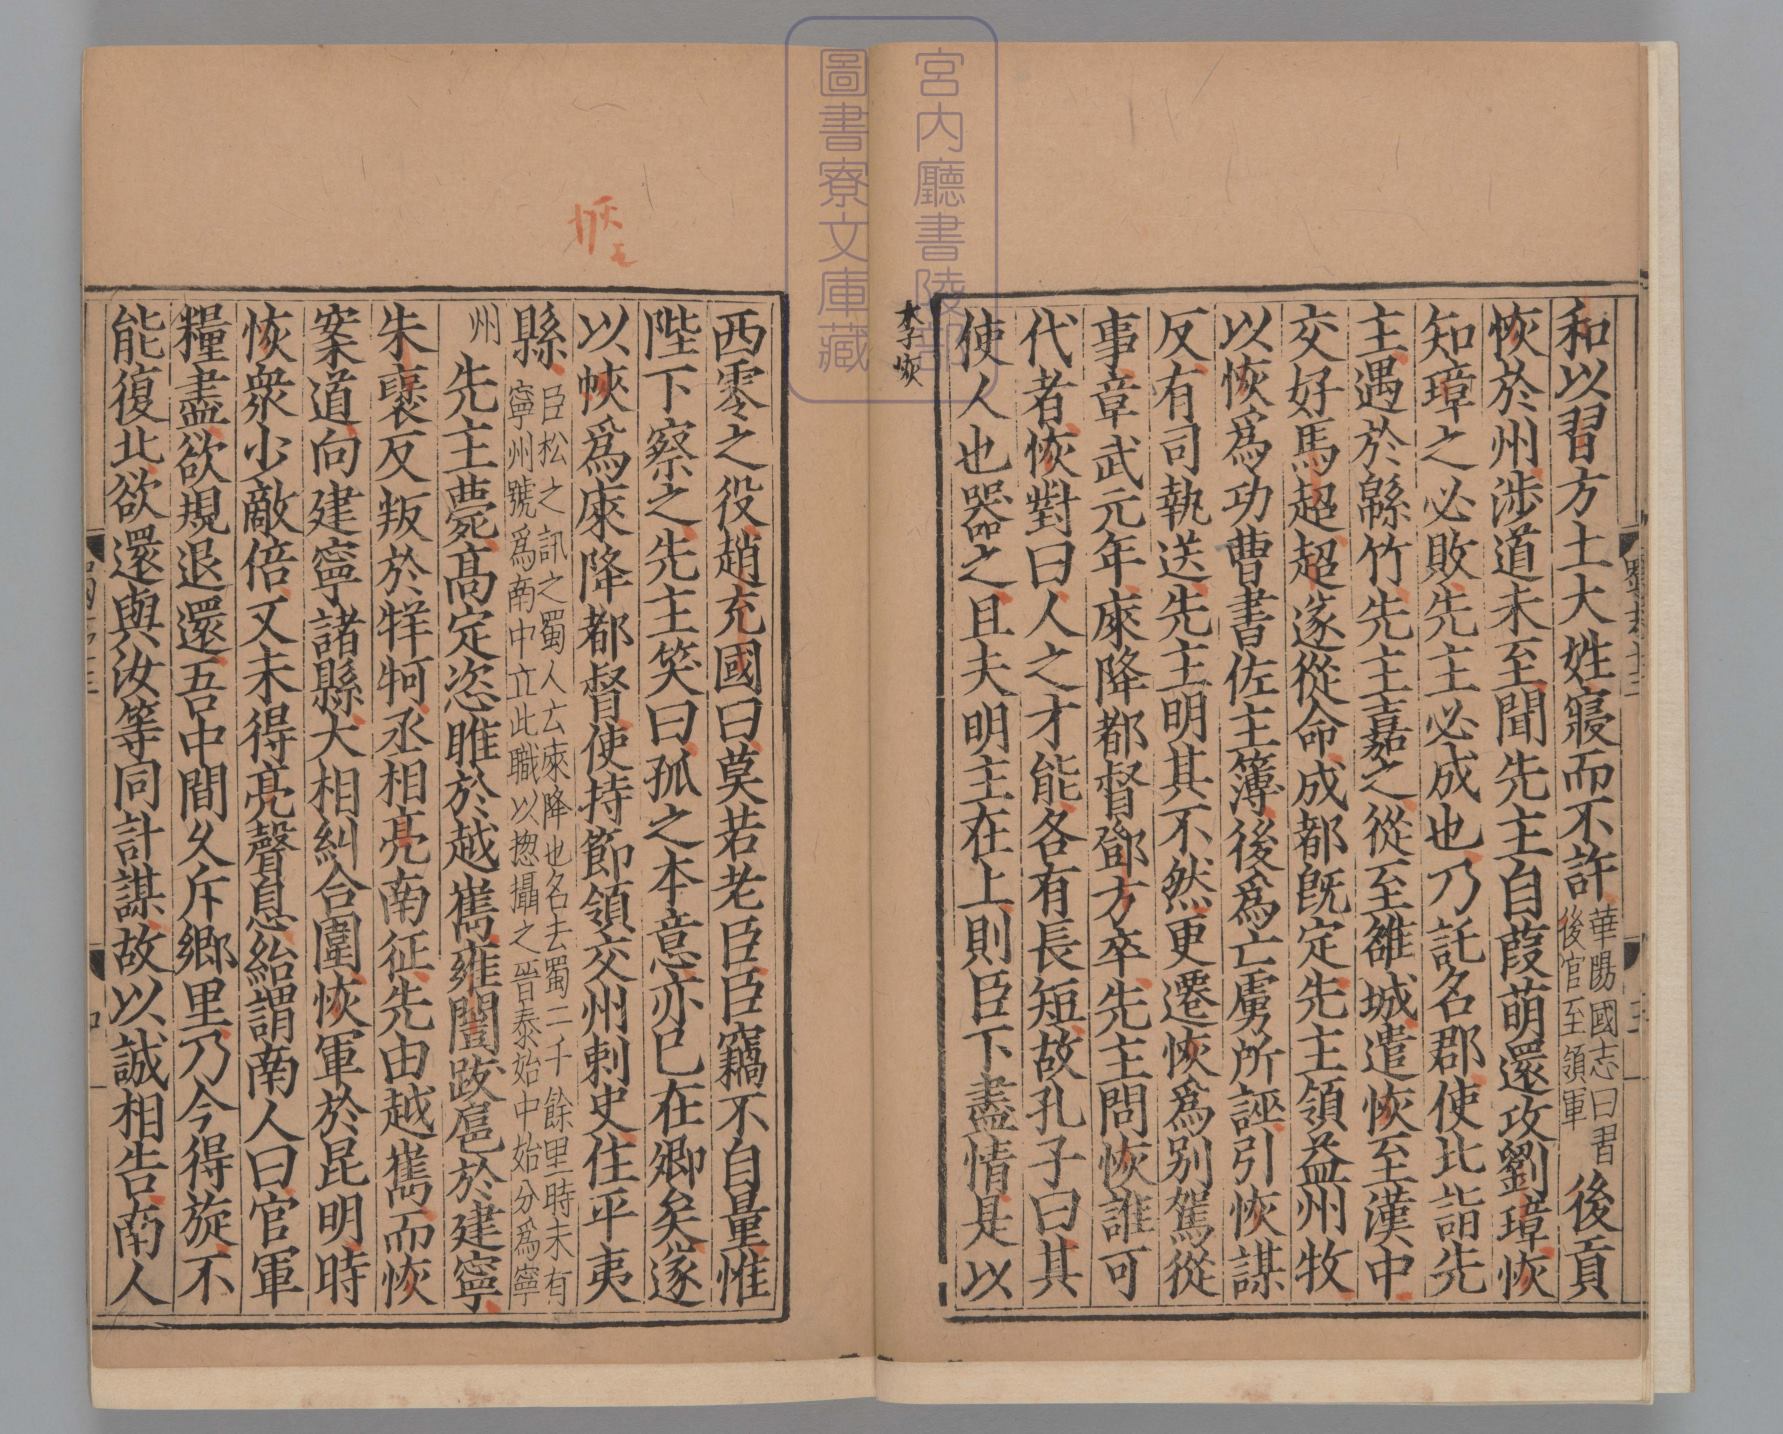 宮内廳書陵部
圖書寮文庫藏
和以習方土大姓寢而不許華陽國志曰習後官至領軍後貢
恢於州涉道未至聞先主自葭萌還攻劉璋恢
知璋之必敗先主必成也乃託名郡使北詣先
主遇於緜竹先主嘉之從至雒城遣恢至漢中
交好馬超超遂從命成都既定先主領益州牧
以恢爲功曹書佐主簿後爲亡虜所誣引恢謀
反有司執送先主明其不然更遷恢爲別駕從
事章武元年庲降都督鄧方卒先主問恢誰可
代者恢對曰人之才能各有長短故孔子曰其
使人也器之且夫明主在上則臣下盡情是以
李恢
西零之役趙充國曰莫若老臣臣竊不自量惟
陛下察之先主笑曰孤之本意亦已在卿矣遂
以恢爲庲降都督使持節領交州刺史住平夷
縣臣松之訊之蜀人云庲降也名去蜀二千餘里時未有寧州號爲南中立此職以揔攝之晉泰始中始分爲寧
州先主薨高定恣睢於越嶲雍闓跋扈於建寧
朱襃反叛於牂牁丞相亮南征先由越嶲而恢
案道向建寧諸縣大相糾合圍恢軍於昆明時
恢衆少敵倍又未得亮聲息紿謂南人曰官軍
糧盡欲規退還吾中間久斥鄉里乃今得旋不
能復北欲還與汝等同計謀故以誠相告南人